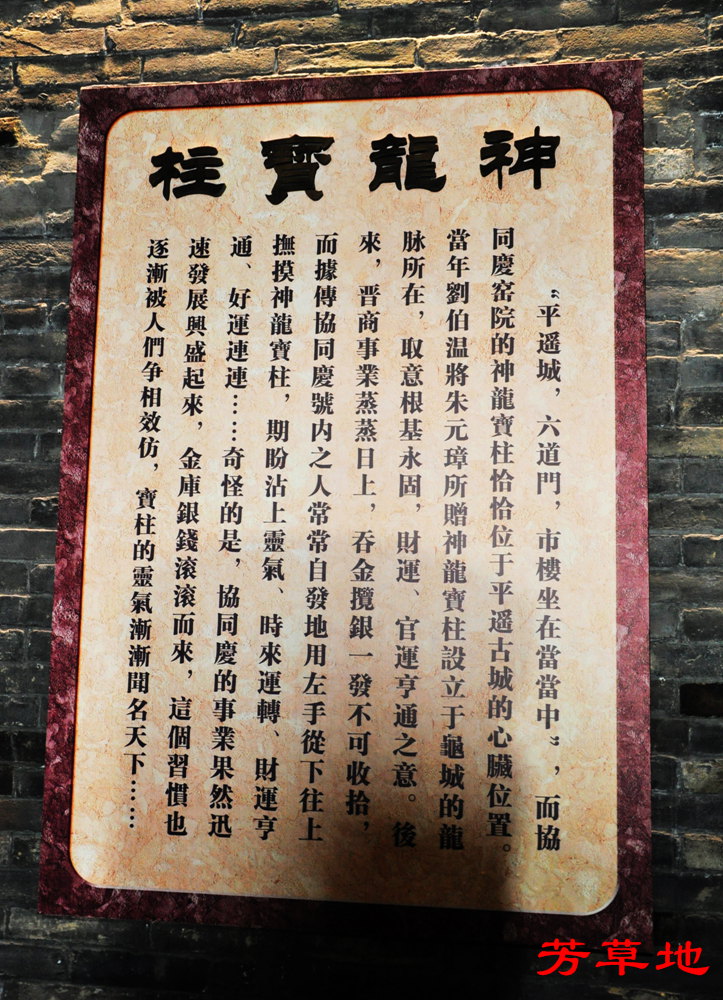 神龍寶柱
“平遥城，六道門，市樓坐在當當中”，而協
同慶窑院的神龍寶柱恰恰位于平遥古城的心臟位置。
當年劉伯温將朱元璋所贈神龍寶柱設立于龜城的龍
脉所在，取意根基永固，財運、官運亨通之意。後
來，晋商事業蒸蒸日上，吞金攬銀一發不可收拾，
而據傳協同慶號内之人常常自發地用左手從下往上
撫摸神龍寶柱，期盼沾上靈氣、時來運轉、財運亨
通、好運連連……奇怪的是，協同慶的事業果然迅
速發展興盛起來，金庫銀錢滚滚而來，這個習慣也
逐漸被人們争相效仿，寶柱的靈氣漸漸聞名天下……
芳草地